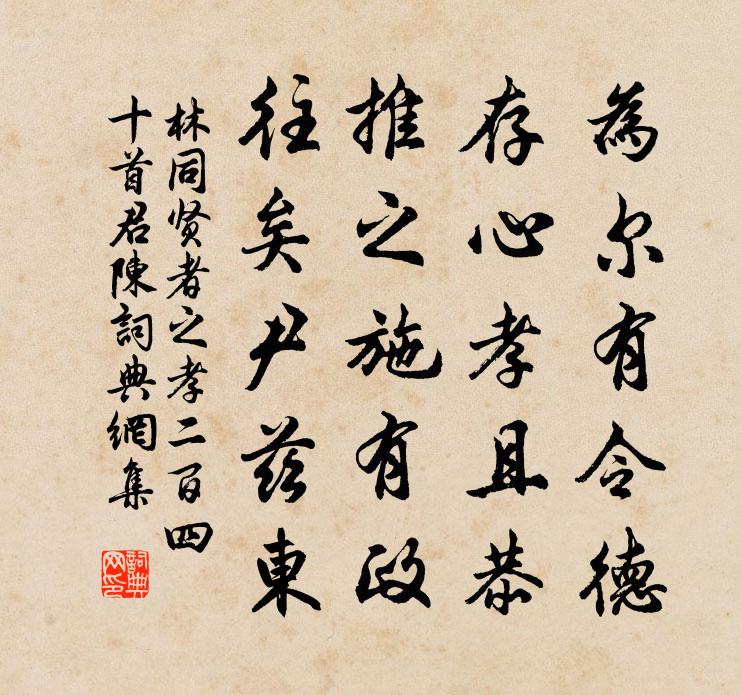 為尔有令德
存心孝且恭
推之施有政
往矣尹茲東
林同贤者之孝二百四
十首君陳詞典網集
詞典
网印